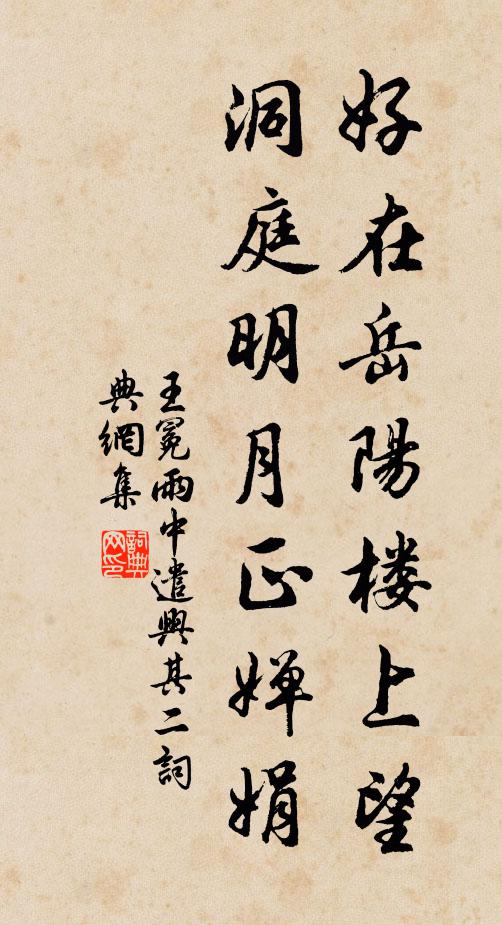 好在岳陽楼上望
洞庭明月正婵娟
王冕雨中遣興其二詞
典網集
詞典网印